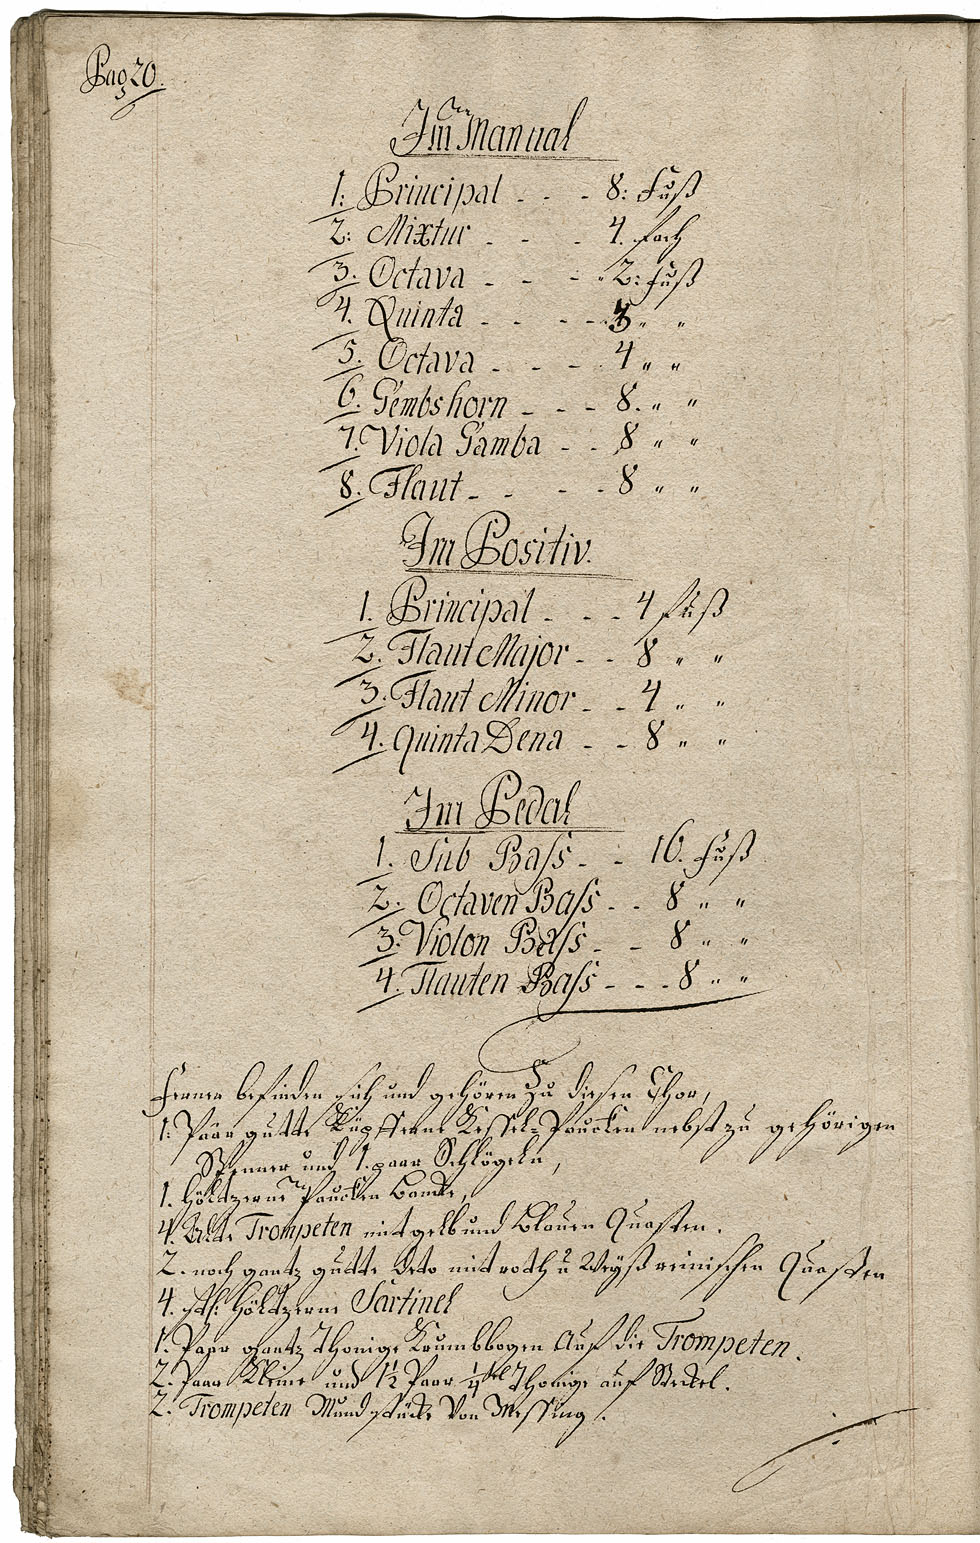 Pag 20.
Im Manual
1: Principal - - - 8: Fuß
2: Mixtur - - - 4. fach
3. Octava - - - 2: Fuß
4. Quinta - - - - 3 " "
5. Octava - - - 4 " "
6. Gembshorn - - - 8. " "
7. Viola Gamba - - 8 " "
8. Flaut - - - - 8 " "
Im Positiv.
1. Principal - - - 4 fuß
2. Flaut Major - - 8 " "
3. Flaut Minor - - 4 " "
4. Quinta Dena - - 8 " "
Im Pedal
1. Sub Bass - - 16. Fuß
2. Octaven Bass - - 8 " "
3. Violon Bass - - 8 " "
4. Flauten Bass - - - 8 " "
Ferner befinden sich und gehören zu diesen Chor,
1: Päar gutte Küpfferne Kessel-Paucken nebst zu gehörigen
Spenner und 1. paar Schlögeln,
1. Höltzerne Paucken
4. Alte Trompeten mit gelb und Blauen Quasten.
2. noch gantz gutte deto mit roth u Weyß Quasten
4. stk: Höltzerne Sartinel
1. Paar gantz Thonige Krumbbogen auf die Trompeten.
2. Paar Kleine und 1½ Paar ¼tel Thonige auf Steckel.
2. Trompeten Mundstücke Von Messing.